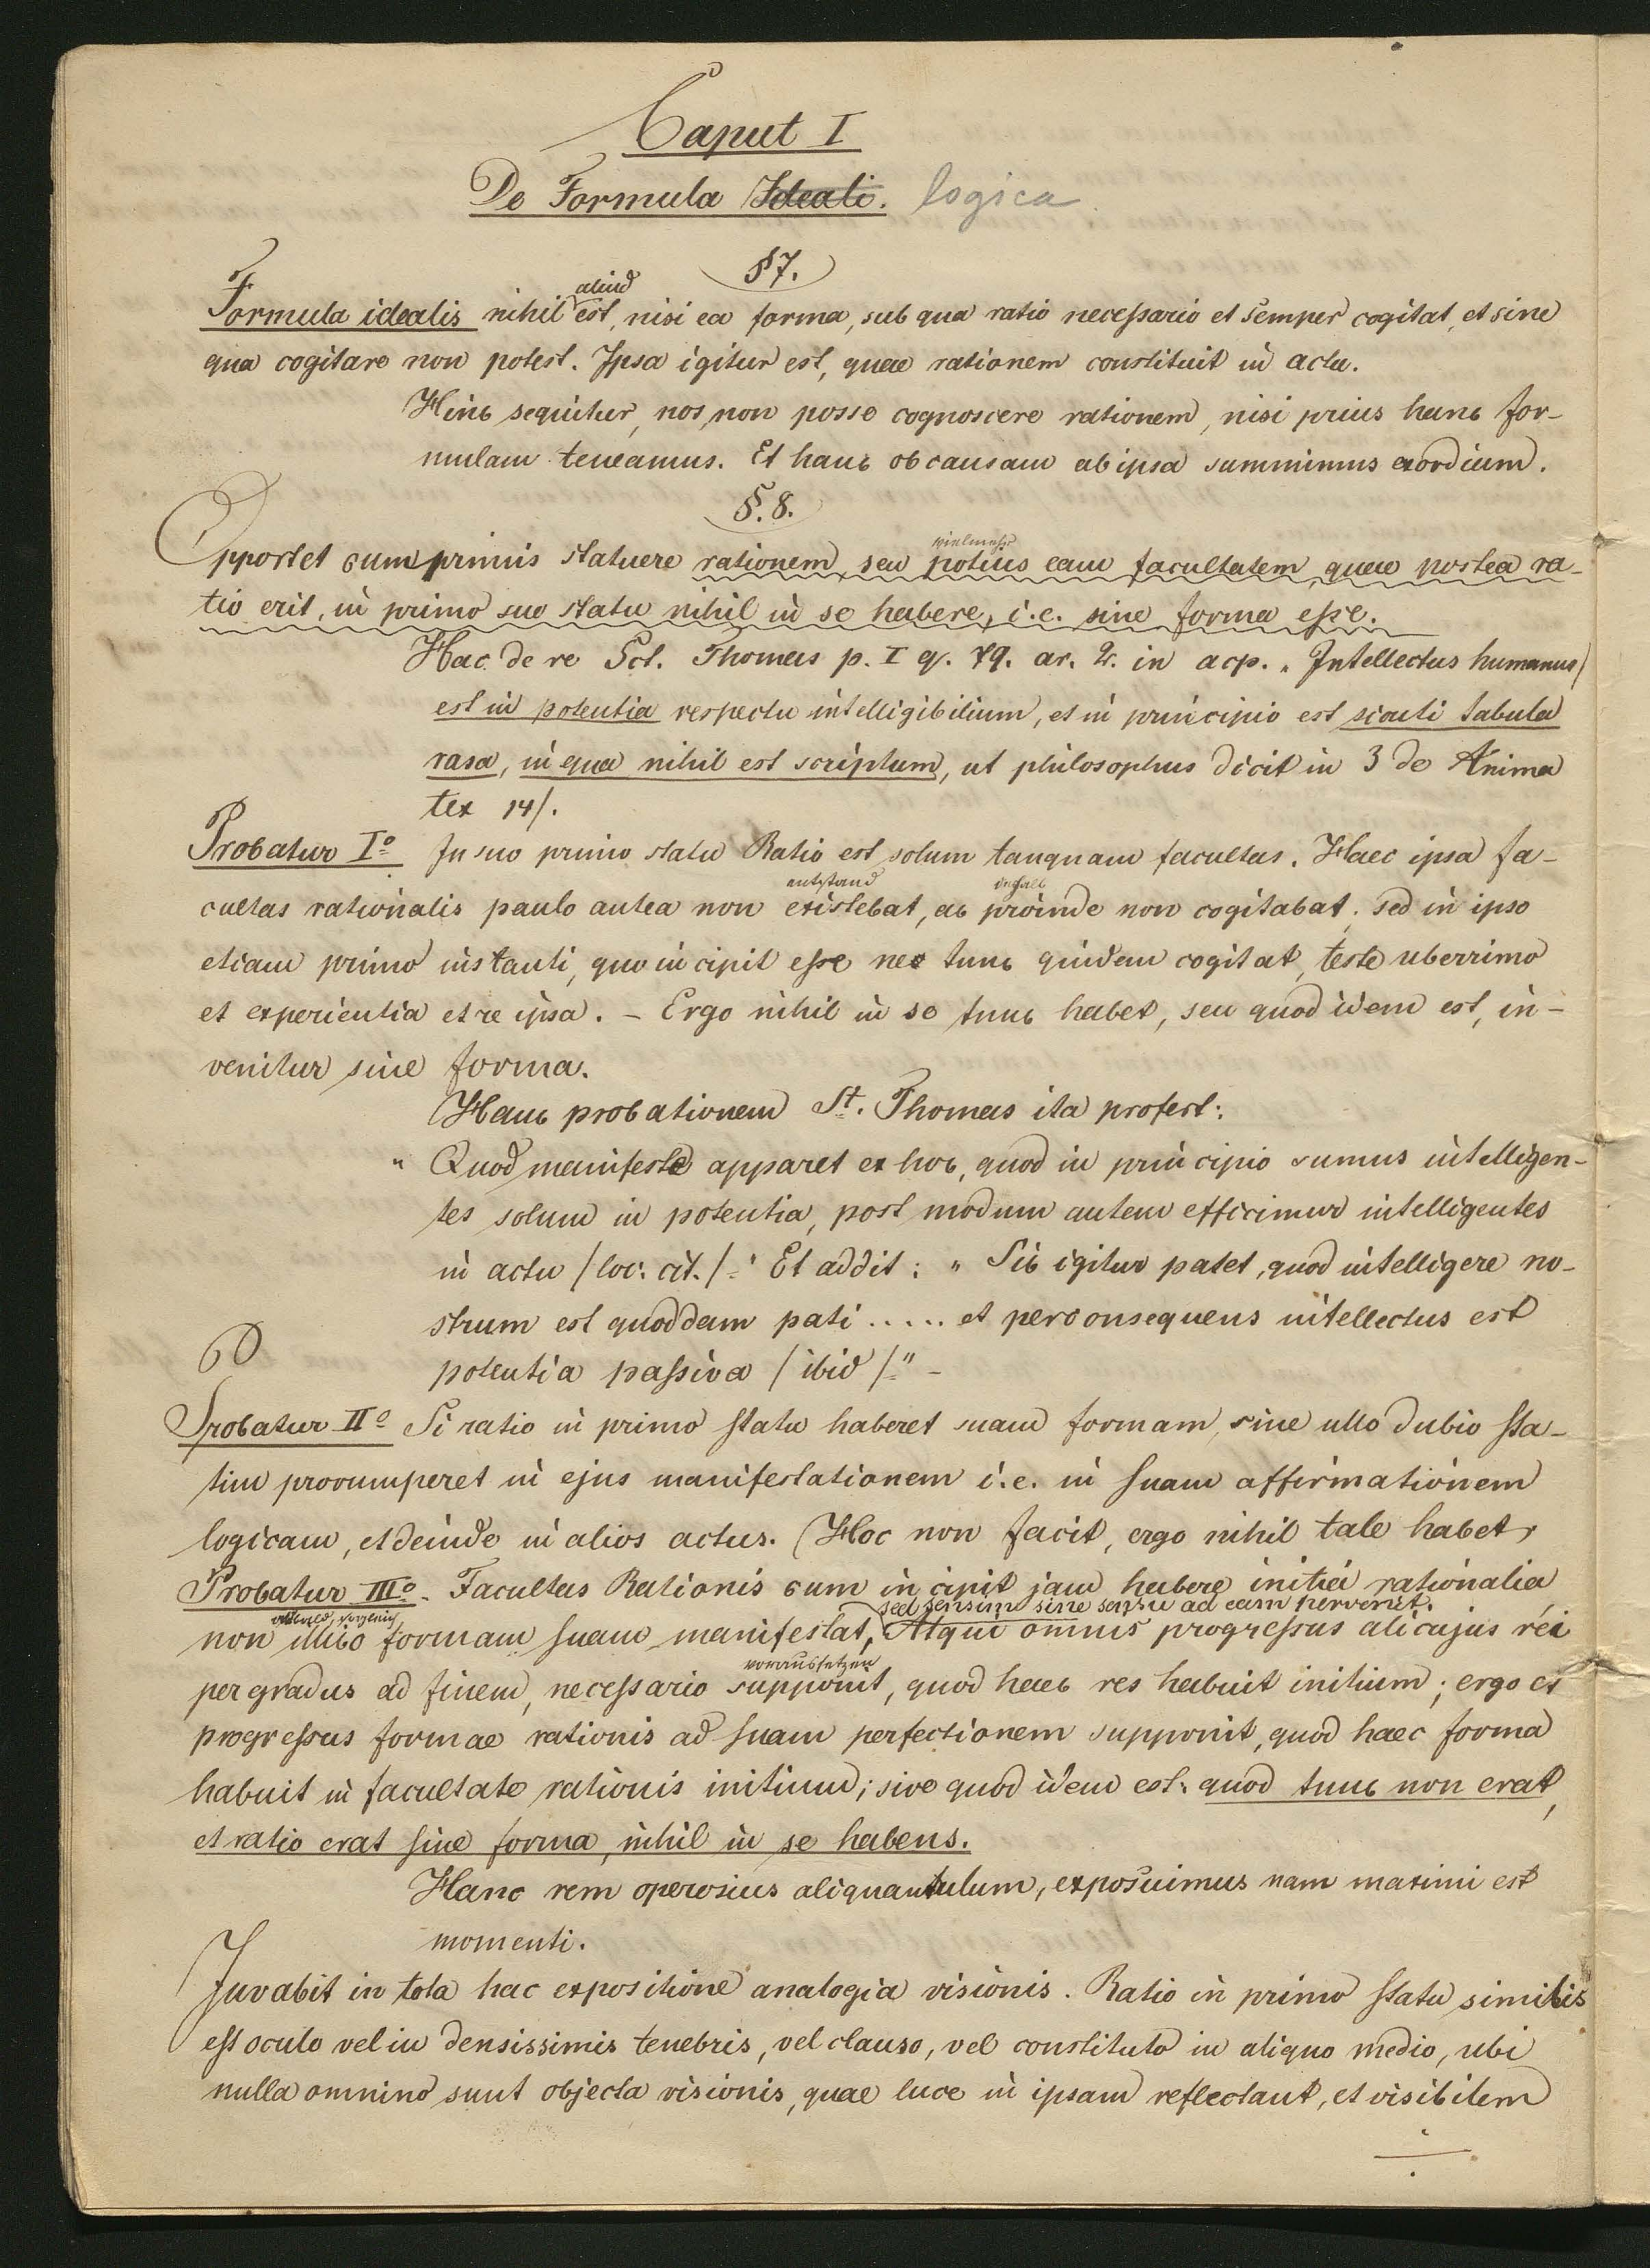 Caput I
De Formula Ideali. logica
§ 7.
aliud
Formula idealis nihil est, nisi ea forma, sub qua ratio necessario et semper cogitat, et sine
qua cogitare non potest. Ipsa igitur est, quae rationem constituit in actu.
Hinc sequitur, nos non posse cognoscere rationem, nisi prius hanc for-
mulam teneamus. Et hanc ob causam ab ipsa summimus exordium.
§. 8.
vielmehr
Opportet cum primis statuere rationem, seu potius eam facultatem, quae postea ra-
tio erit, in primo suo statu nihil in se habere, i.e. sine forma esse.
Hac de re Sct. Thomas p. I q. 79. ar. 2. in acp. „ Intellectus humanus /
est in potentia respectu intelligibilium, et in principio est sicuti tabula
rasa, in qua nihil est scriptum, ut philosophus dicit in 3 de Anima
tex 14/.
Probatur Iº In suo primo statu Ratio est solum tanquam facultas. Haec ipsa fa-
entstand deshalb
cultas rationalis paulo antea non existebat, ac proinde non cogitabat. sed in ipso
etiam primo instanti, quo incipit esse nec tunc quidem cogitat, teste uberrimo
et experientia et re ipsa. – Ergo nihil in se tunc habet, seu quod idem est, in-
venitur sine forma.
Hanc probationem St. Thomas ita profert:
" Quod manifeste apparet ex hoc, quod in principio sumus intelligen-
tes solum in potentia, post modum autem efficimur intelligentes
in actu / loc. cit. /." Et addit: " Sic igitur patet, quod intelligere no-
strum est quoddam pati ..... et per consequens intellectus est
potentia passiva / ibid /." –
Probatur IIº Si ratio in primo statu haberet suam formam, sine ullo dubio sta-
tim prorumperet in ejus manifestationem i.e. in suam affirmationem
logicam, et deinde in alios actus. Hoc non facit, ergo nihil tale habet,
Probatur IIIº. Facultas Rationis cum incipit jam habere initia rationalia
sed sensim sine sensu ad eam pervenit.
non illico formam suam manifestat, Atqui omnis progressus alicujus rei
voraussetzen
per gradus ad finem, necessario supponit, quod haec res habuit initium; ergo et
progressus formae rationis ad suam perfectionem supponit, quod haec forma
habuit in facultate rationis initium; sive quod idem est: quod tunc non erat,
et ratio erat sine forma, nihil in se habens.
Hanc rem operosius aliquantulum, exposuimus nam maximi est
momenti.
Juvabit in tota hac expositione analogia visionis. Ratio in primo statu similis
est oculo vel in densissimis tenebris, vel clauso, vel constituto in aliquo medio, ubi
nulla omnino sunt objecta visionis, quae luce in ipsam reflectant, et visibilem